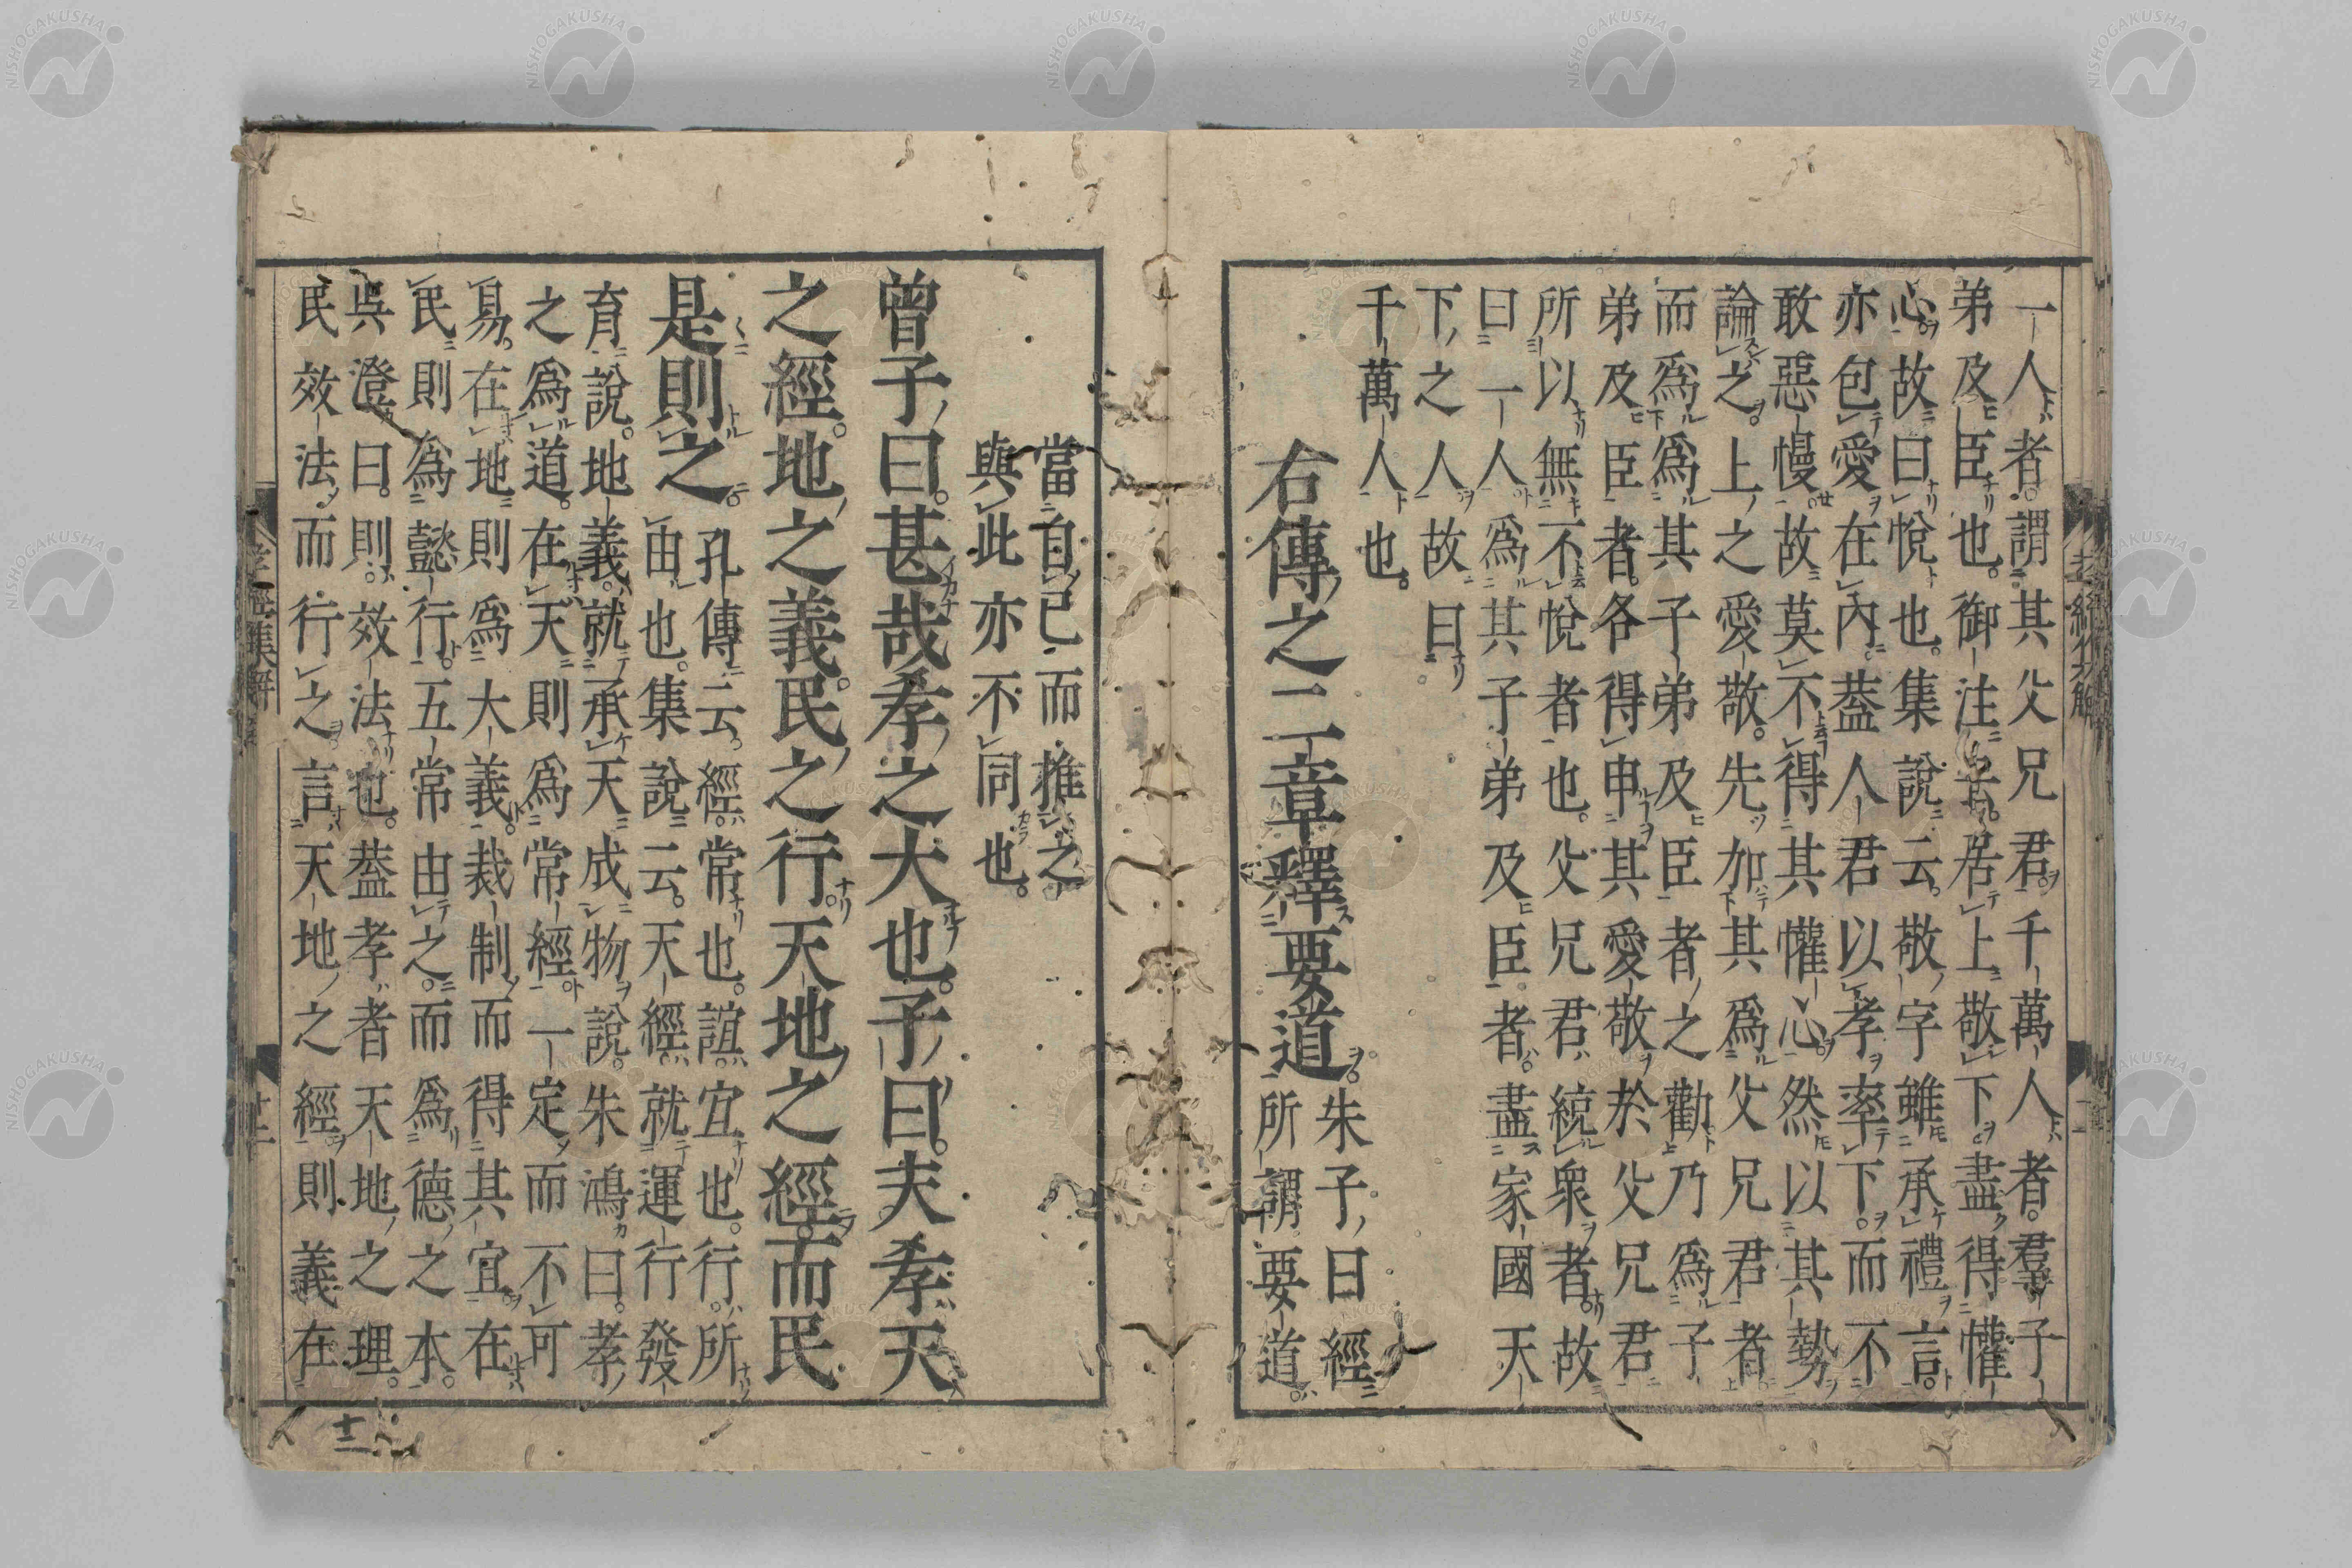 一人者謂其父兄君千萬人者羣子
弟及臣也御注云居上敬下盡得懽
心故曰悅也集說云敬字雖承禮言
亦包愛在內蓋人君以孝率下而不
敢惡慢故莫不得其懽心然以其勢
論之上之愛敬先加其爲父兄君者
而爲爲其子弟及臣者之勸乃爲子
弟及臣者各得申其愛敬於父兄君
所以無不悅者也父兄君統衆者故
曰一人爲其子弟及臣者盡家國天
下之人故曰
千萬人也
右傳之二章釋要道
朱子曰經
所謂要道
當自己而推之
與此亦不同也
曾子曰甚哉孝之大也子曰夫孝天
之經地之義民之行天地之經而民
是則之
孔傳云經常也誼宜也行所
由也集說云天經就運行發
育說地義就承天成物說朱鴻曰孝
之爲道在天則爲常經一定而不可
易在地則爲大義裁制而得其宜在
民則爲懿行五常由之而爲德之本
吳澄曰則效法也蓋孝者天地之理
民效法而行之言天地之經則義在
孝經集解
十二
十二
NISHOGAKUSHA